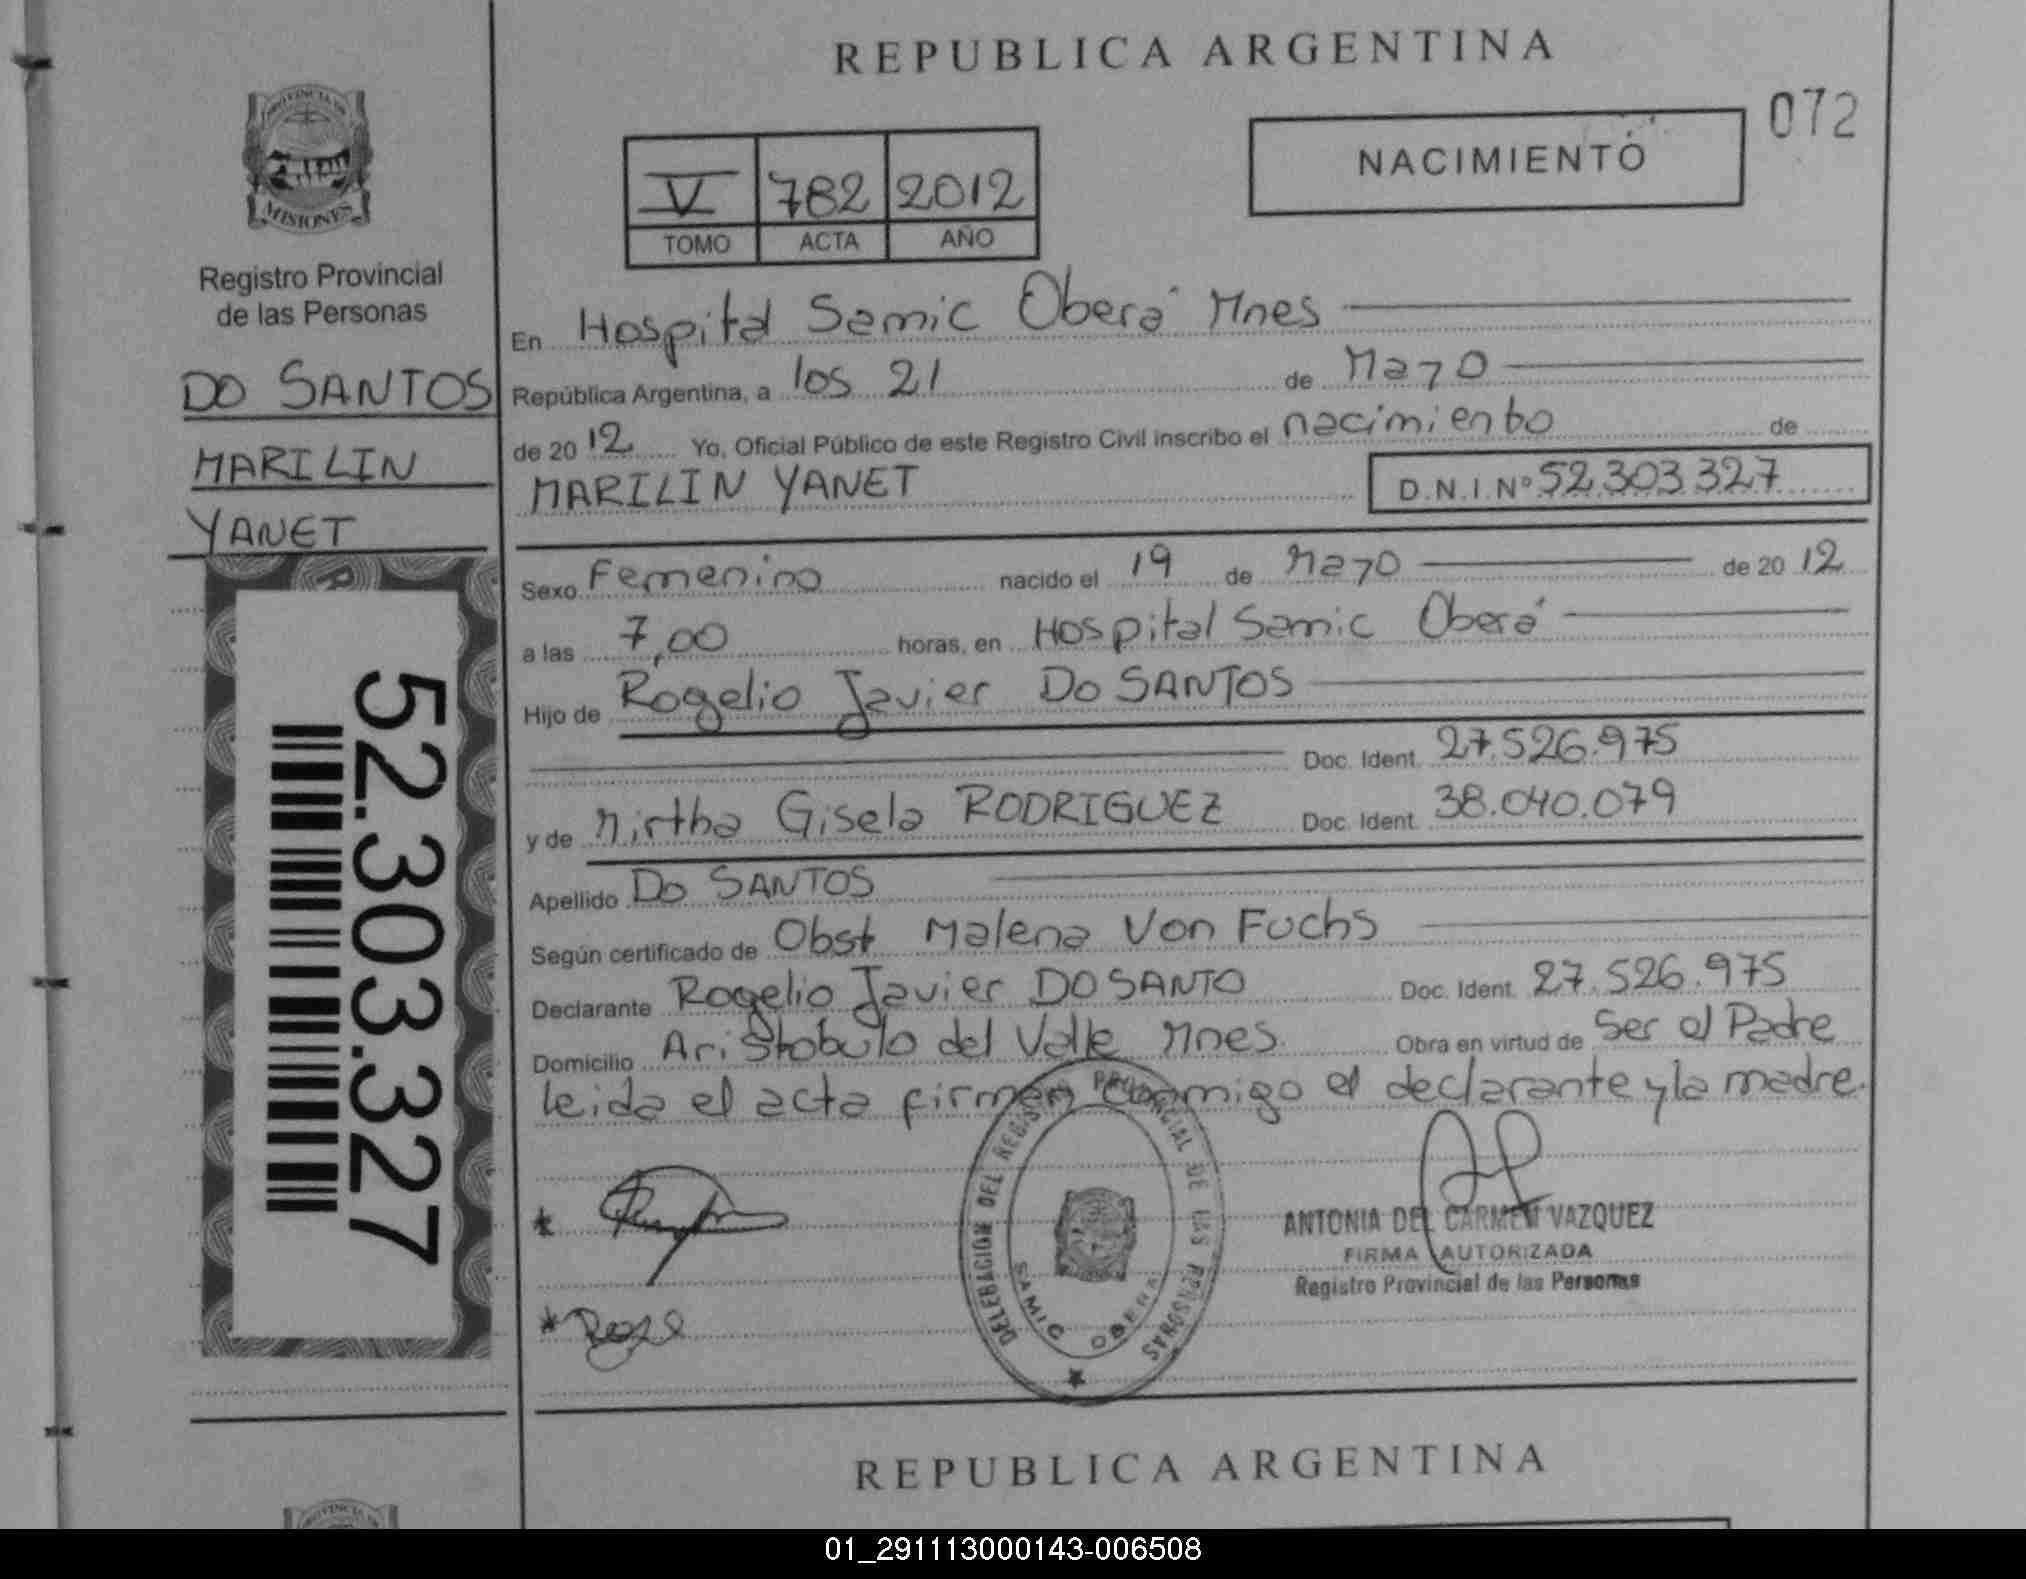 REPUBLICA ARGENTINA
072
NACIMIENTO
V 782 2012
TOMO ACTA AÑO
PROVINCIA DE
MISIONES
Registro Provincial
de las Personas
DO SANTOS
MARILIN
YANET
52.303.327
En Hospital Samic Oberá Mnes
República Argentina, a los 21 de Mayo
de 20 12 Yo, Oficial Público de este Registro Civil inscribo el nacimiento de
MARILIN YANET D.N.I.Nº 52.303.327
Sexo Femenino nacido el 19 de Mayo de 20 12
a las 7,00 horas, en Hospital Samic Oberá
Hijo de Rogelio Javier Do SANTOS
Doc. Ident. 27.526.975
y de Mirtha Gisela RODRIGUEZ Doc. Ident. 38.040.079
Apellido Do SANTOS
Según certificado de Obst Malena Von Fuchs
Declarante Rogelio Javier DO SANTO Doc. Ident. 27.526.975
Domicilio Aristobulo del Valle Mnes Obra en virtud de Ser el Padre
leida el acta firman conmigo el declarante y la madre.
DELEGACION DEL REGISTRO PROVINCIAL DE LAS PERSONAS
SAMIC OBERA
ANTONIA DEL CARMEN VAZQUEZ
FIRMA AUTORIZADA
Registro Provincial de las Personas
REPUBLICA ARGENTINA
01_291113000143-006508